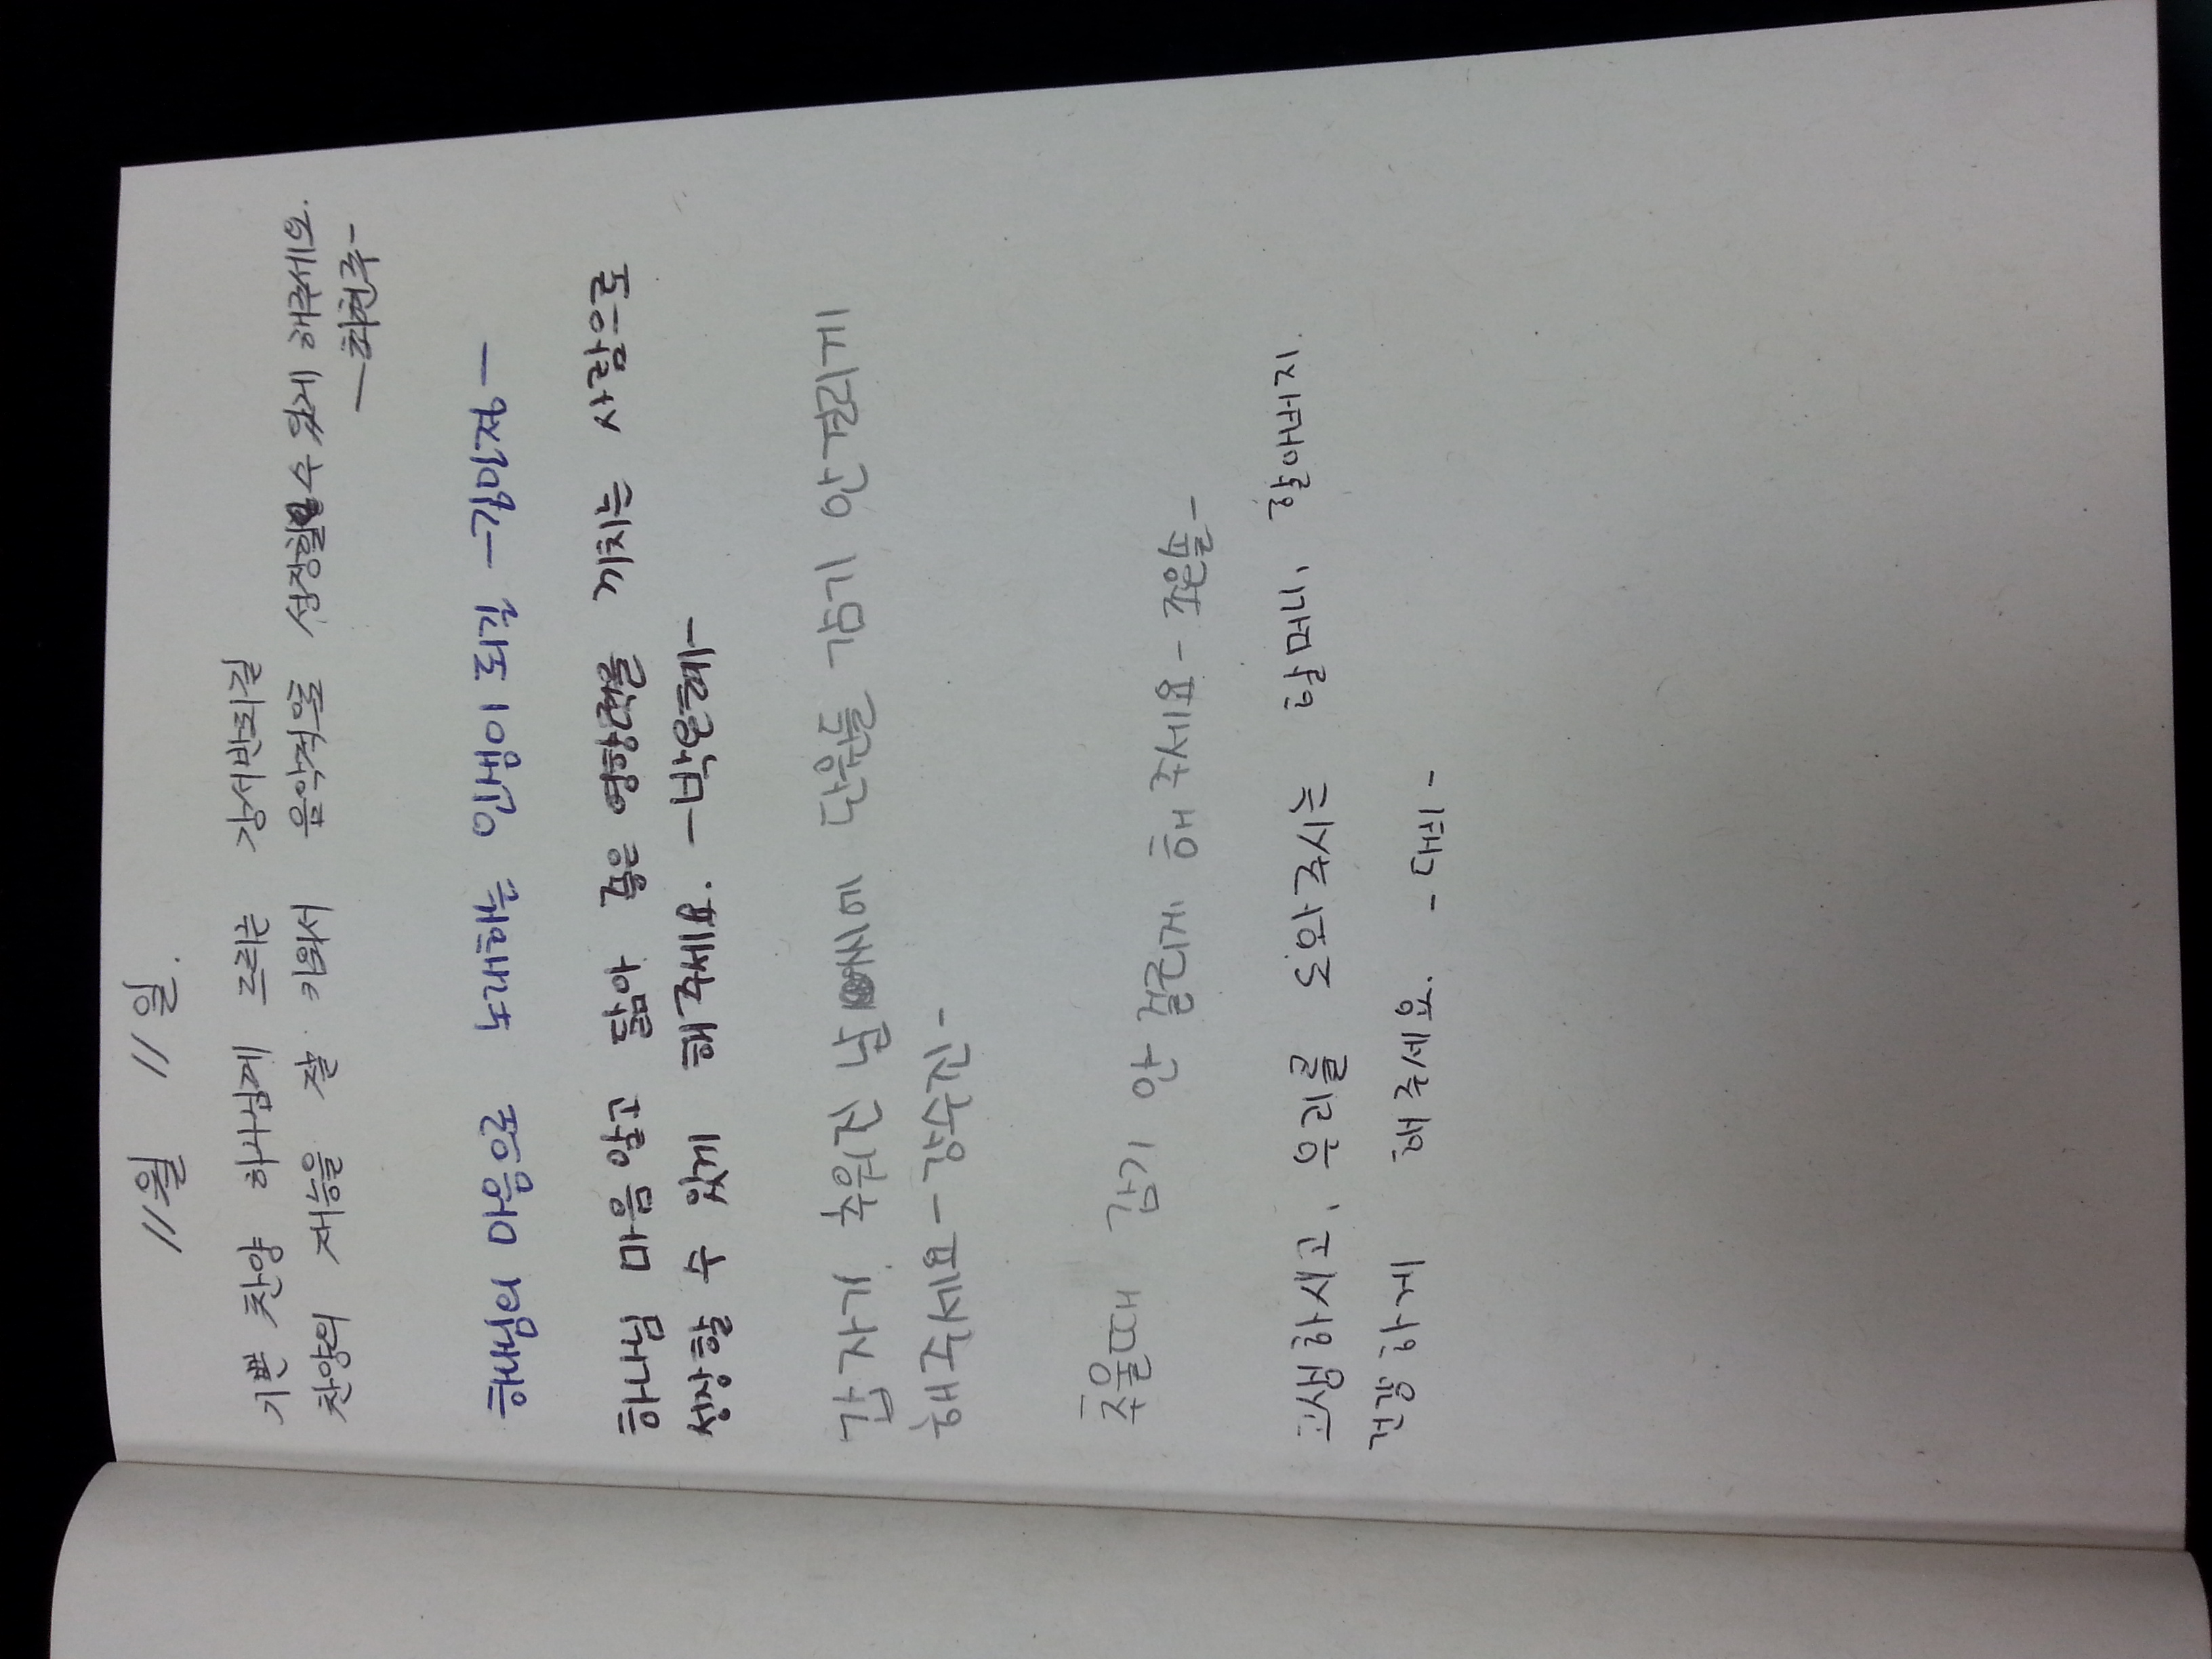 11월 11일.
기쁜 찬양 하나님께 드리는 강서반되길
찬양의 재능을 잘 키워서 음악적으로 성장할 수 있게 해주세요.
-최현주-
하나님의 마음으로 노래하는 인생이 되길 -김민정-
하나님 마음 알고 닮아 좋은 영향력을 끼치는 사람으로
성장할 수 있게 해주세요. -박은혜-
갑자기 추워진 날씨에 단원들 감기 안걸리게
해주세요 -강수진-
추울때 감기 안 걸리게 해주세요 - 조은솔 -
고생하시고, 우리를 도와주시는 할머니, 할아버지.
건강하게 해주세요. - 다비 -